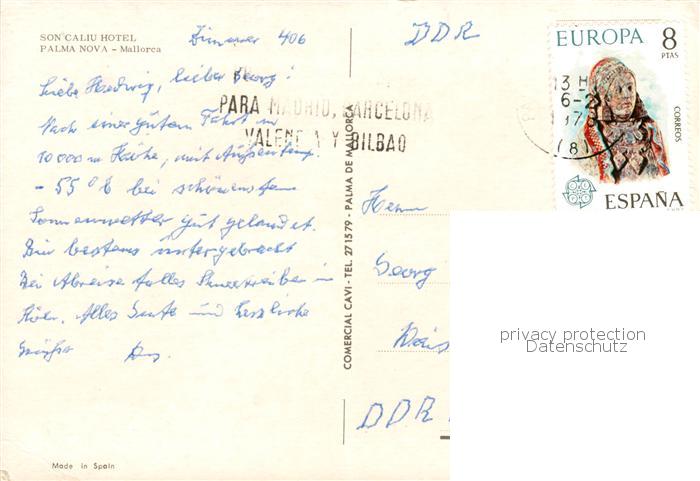 SON CALIU HOTEL
PALMA NOVA - Mallorca
Zimmer 406
Liebe Hedwig, lieber Georg!
Nach einer guten Fahrt in
10 000 m Höhe, mit Außentemp.
- 55° bei schönstem
Sonnenwetter gut gelandet.
Bin bestens untergebracht
Bei Abreise tolles Schneetreiben in
Köln. Alles Gute und herzliche
Grüße
Made in Spain
COMERCIAL CAVI - TEL. 271579 - PALMA DE MALLORCA
PARA MADRID, BARCELONA
VALENCIA Y BILBAO
DDR
EUROPA 8
PTAS
CORREOS
ESPAÑA
13 H
(8)
Herrn
Georg
DDR
privacy protection
Datenschutz